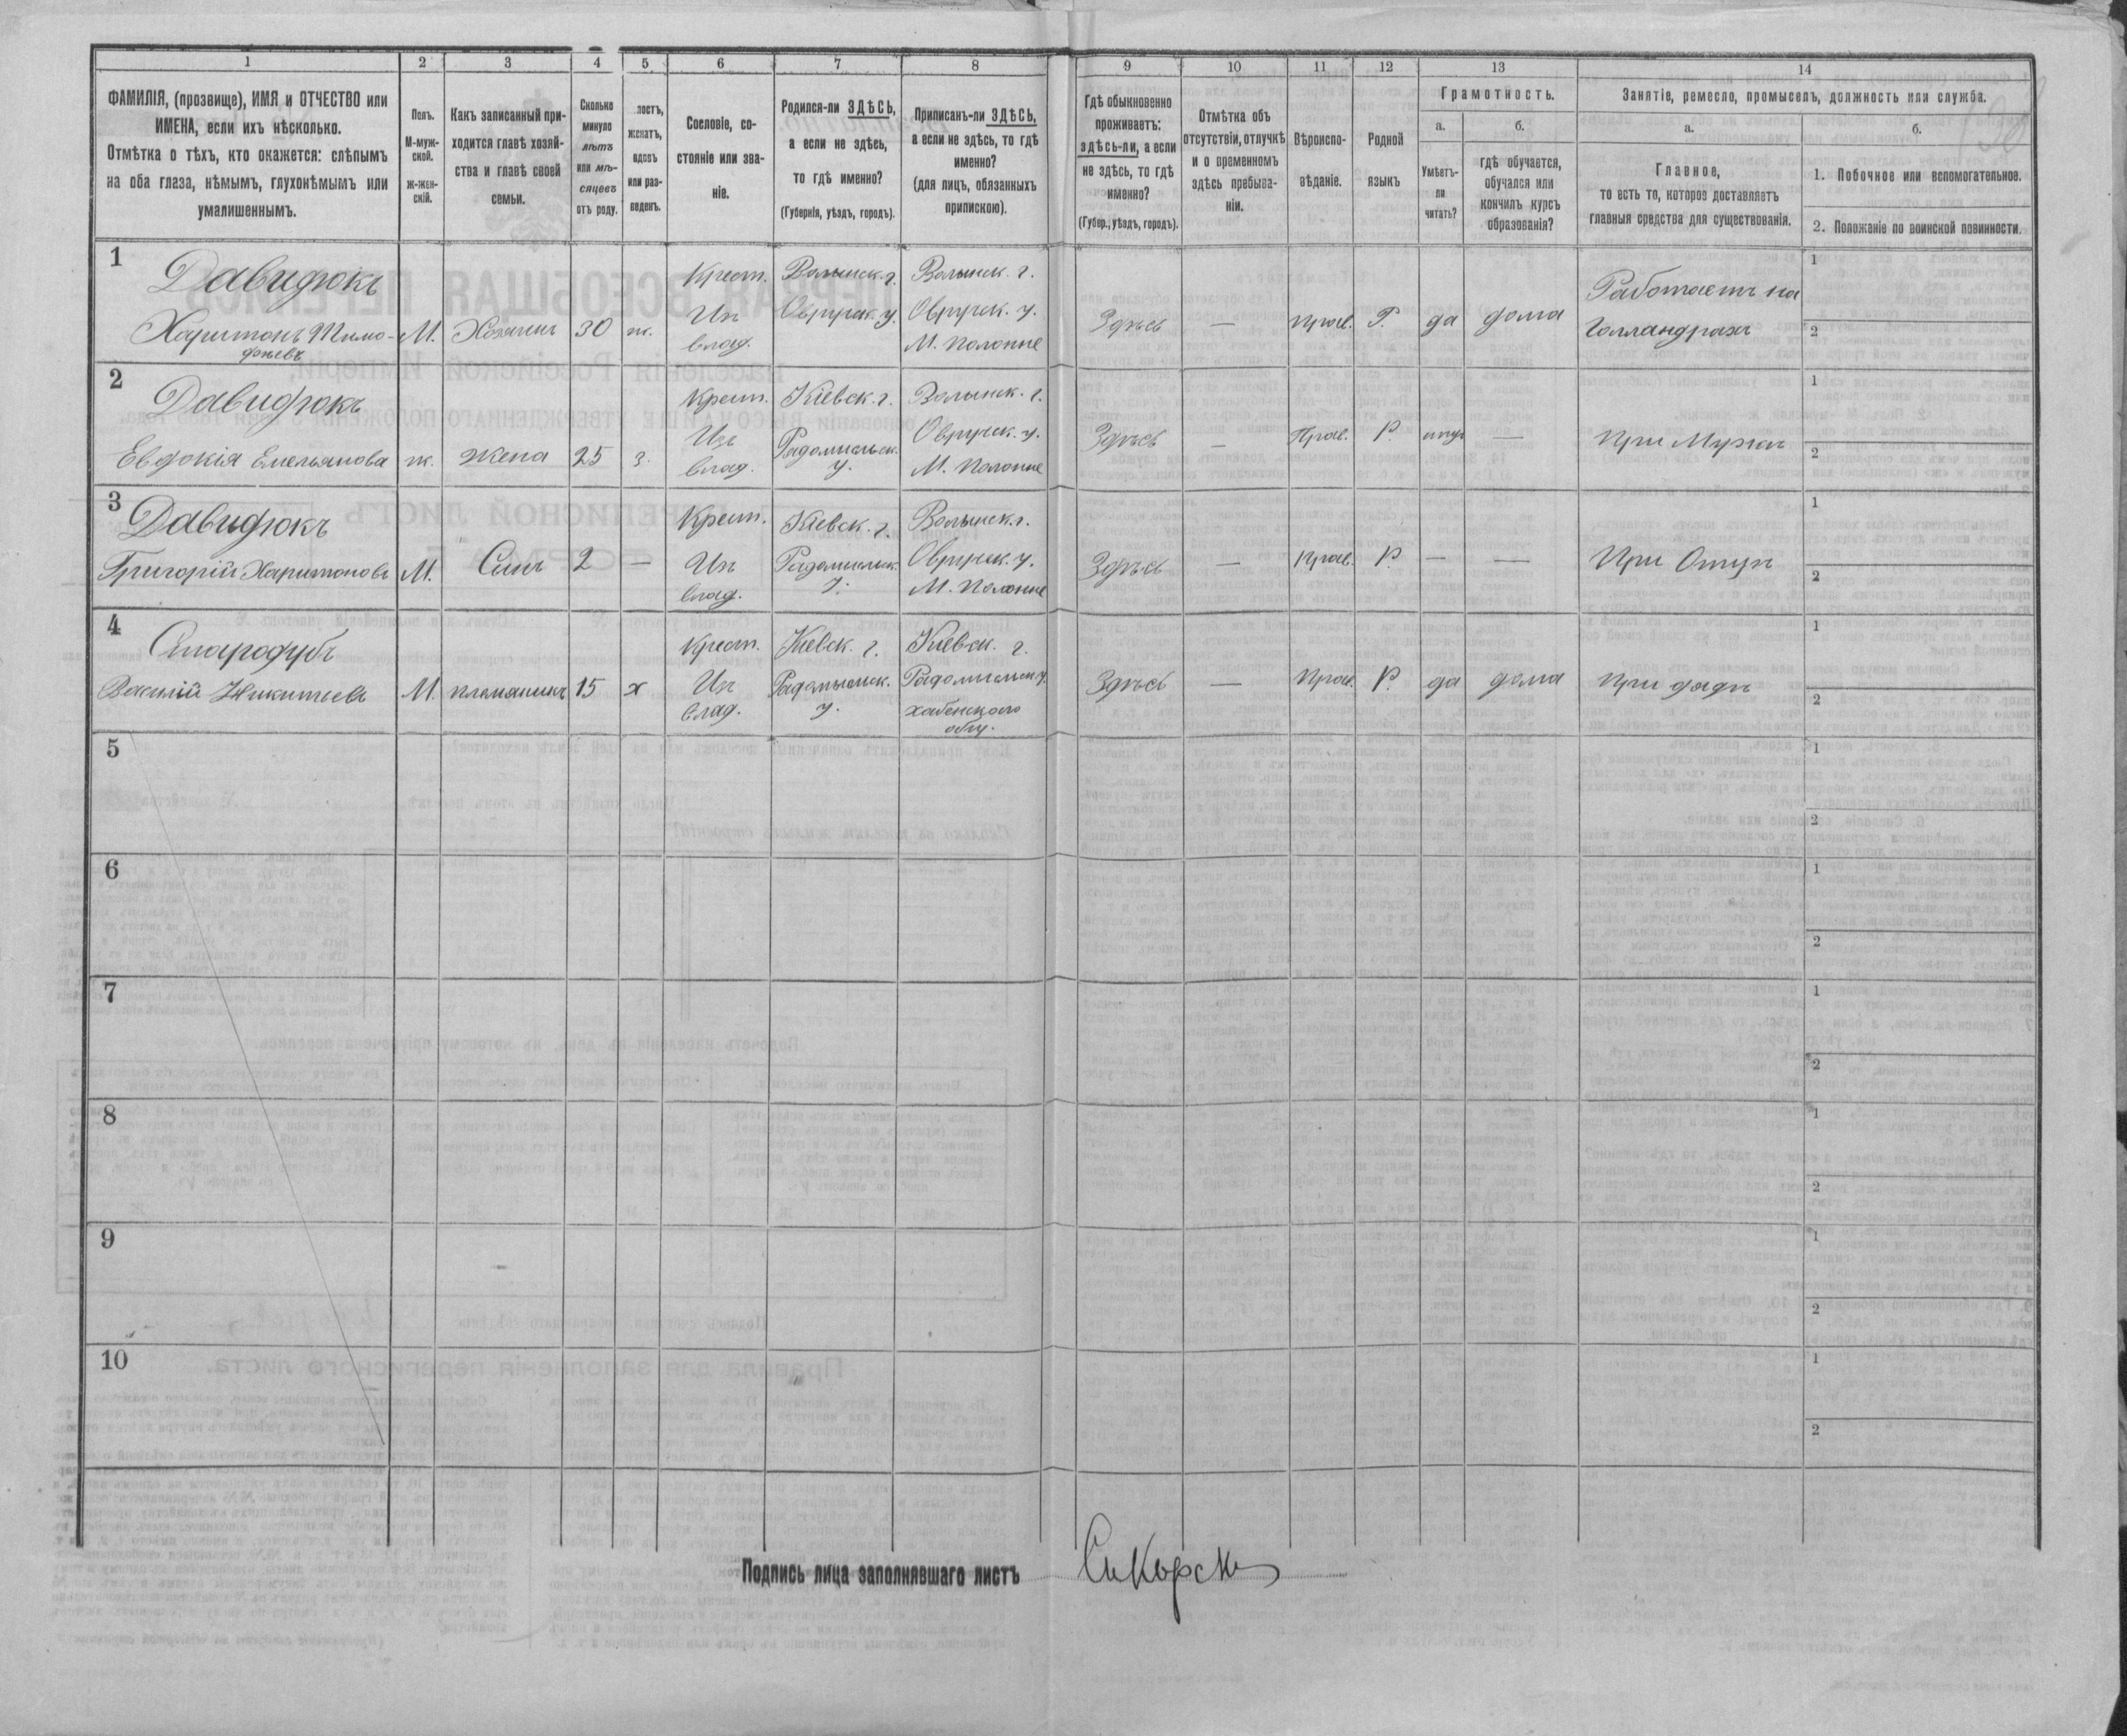 1 2 3 4 5 6 7 8 9 10 11 12 13 14
ФАМИЛІЯ, (прозвище), ИМЯ и ОТЧЕСТВО или
ИМЕНА, если ихъ нѣсколько.
Отмѣтка о тѣхъ, кто окажется: слѣпымъ
на оба глаза, нѣмымъ, глухонѣмымъ или
умалишеннымъ.
Полъ.
М-муж-
ской.
ж-жен-
скій.
Какъ записанный при-
ходится главѣ хозяй-
ства и главѣ своей
семьи.
Сколько
минуло
лѣтъ
или мѣ-
сяцевъ
отъ роду.
лостъ,
женатъ,
вдовъ
или раз-
веденъ.
Сословіе, со-
стояніе или зва-
ніе.
Родился-ли ЗДѢСЬ,
а если не здѣсь,
то гдѣ именно?
(Губернія, уѣздъ, городъ).
Приписанъ-ли ЗДѢСЬ,
а если не здѣсь, то гдѣ
именно?
(для лицъ, обязанныхъ
припискою).
Гдѣ обыкновенно
проживаетъ:
здѣсь-ли, а если
не здѣсь, то гдѣ
именно?
(Губер., уѣздъ, городъ).
Отмѣтка объ
отсутствіи, отлучкѣ
и о временномъ
здѣсь пребыва-
ніи.
Вѣроиспо-
вѣданіе.
Родной
языкъ
Грамотность.
а.
Умѣетъ-
ли
читать?
б.
гдѣ обучается,
обучался или
кончилъ курсъ
образованія?
Занятіе, ремесло, промыселъ, должность или служба.
а.
Главное,
то есть то, которое доставляетъ
главныя средства для существованія.
б.
1. Побочное или вспомогательное.
2. Положеніе по воинской повинности.
1
Давидюкъ
Харитонъ Тимо-
фѣевъ
М. Хозяинъ 30 ж.
Крест.
Изъ
влад.
Волынск. г.
Овручск. у.
Волынск. г.
Овручск. у.
М. Полонне
Здѣсь — прав. Р. да дома
Работаетъ на
Голландрахъ
1
2
2
Давидюкъ
Евдокія Емельянова
ж. Жена 25 з.
Крест.
Изъ
влад.
Кіевск. г.
Радомысльск.
у.
Волынск. г.
Овручск. у.
М. Полонне
Здѣсь — Прав. Р. —
при Мужѣ
1
2
3
Давидюкъ
Григорій Харитоновъ
М. Сынъ 2 —
Крест.
Изъ
влад.
Кіевск. г.
Радомысльск.
у.
Волынск. г.
Овручск. у.
М. Полонне
Здѣсь — прав. Р. — —
При Отцѣ
1
2
4
Стародубъ
Василій Никитіевъ
М. племяникъ 15 х
Крест.
Изъ
влад.
Кіевск. г.
Радомысльск.
у.
Кіевск. г.
Радомысльск. у.
хабенскаго
общ.
Здѣсь — Прав. Р. да дома
при дядѣ
1
2
5
1
2
6
1
2
7
1
2
8
1
2
9
1
2
10
1
2
Подпись лица заполнявшаго листъ